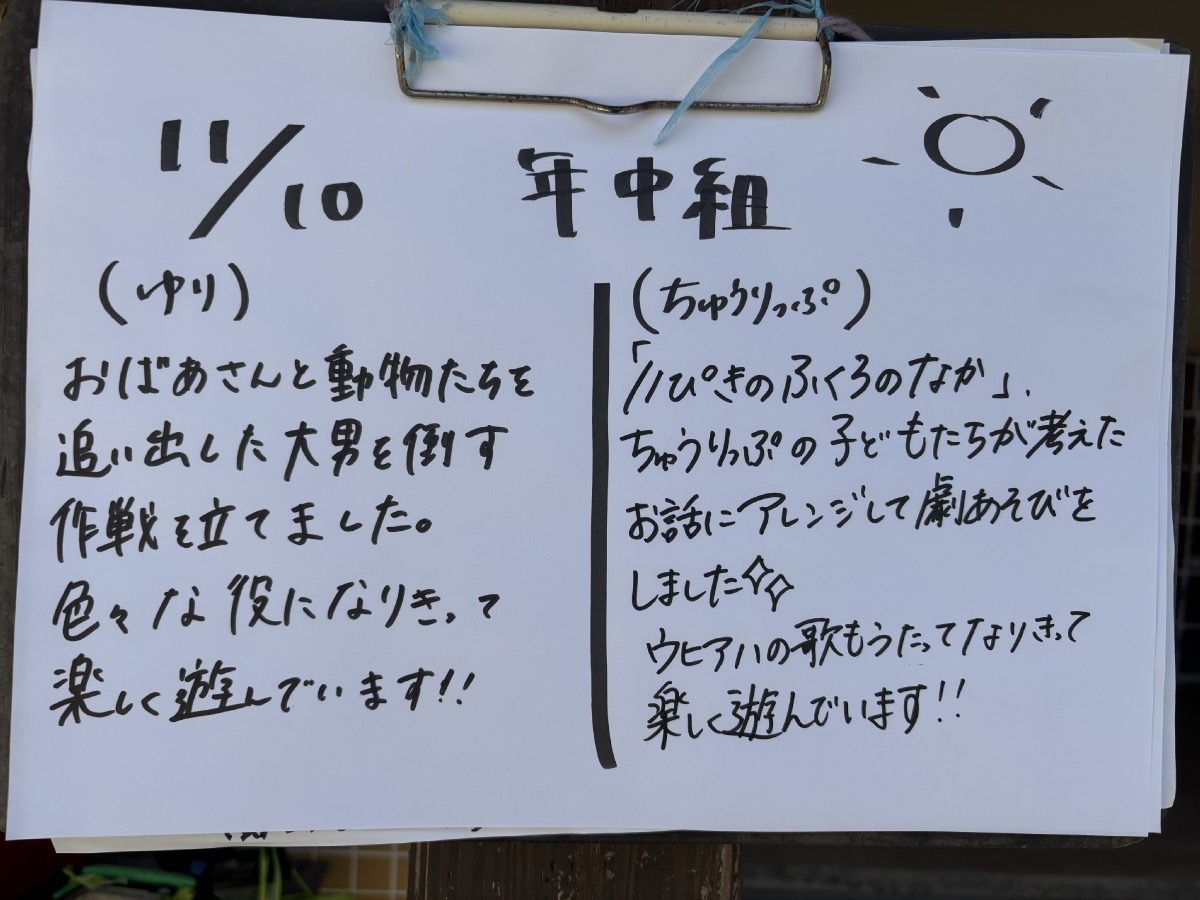 11/10
年中組
(ゆり)
おばあさんと動物たちを
追い出した大男を倒す
作戦を立てました。
色々な役になりきって
楽しく遊んでいます!!
(ちゅうりっぷ)
「11ぴきのふくろのなか」、
ちゅうりっぷの子どもたちが考えた
お話にアレンジして劇あそびを
しました
ウヒアハの歌もうたってなりきって
楽しく遊んでいます!!